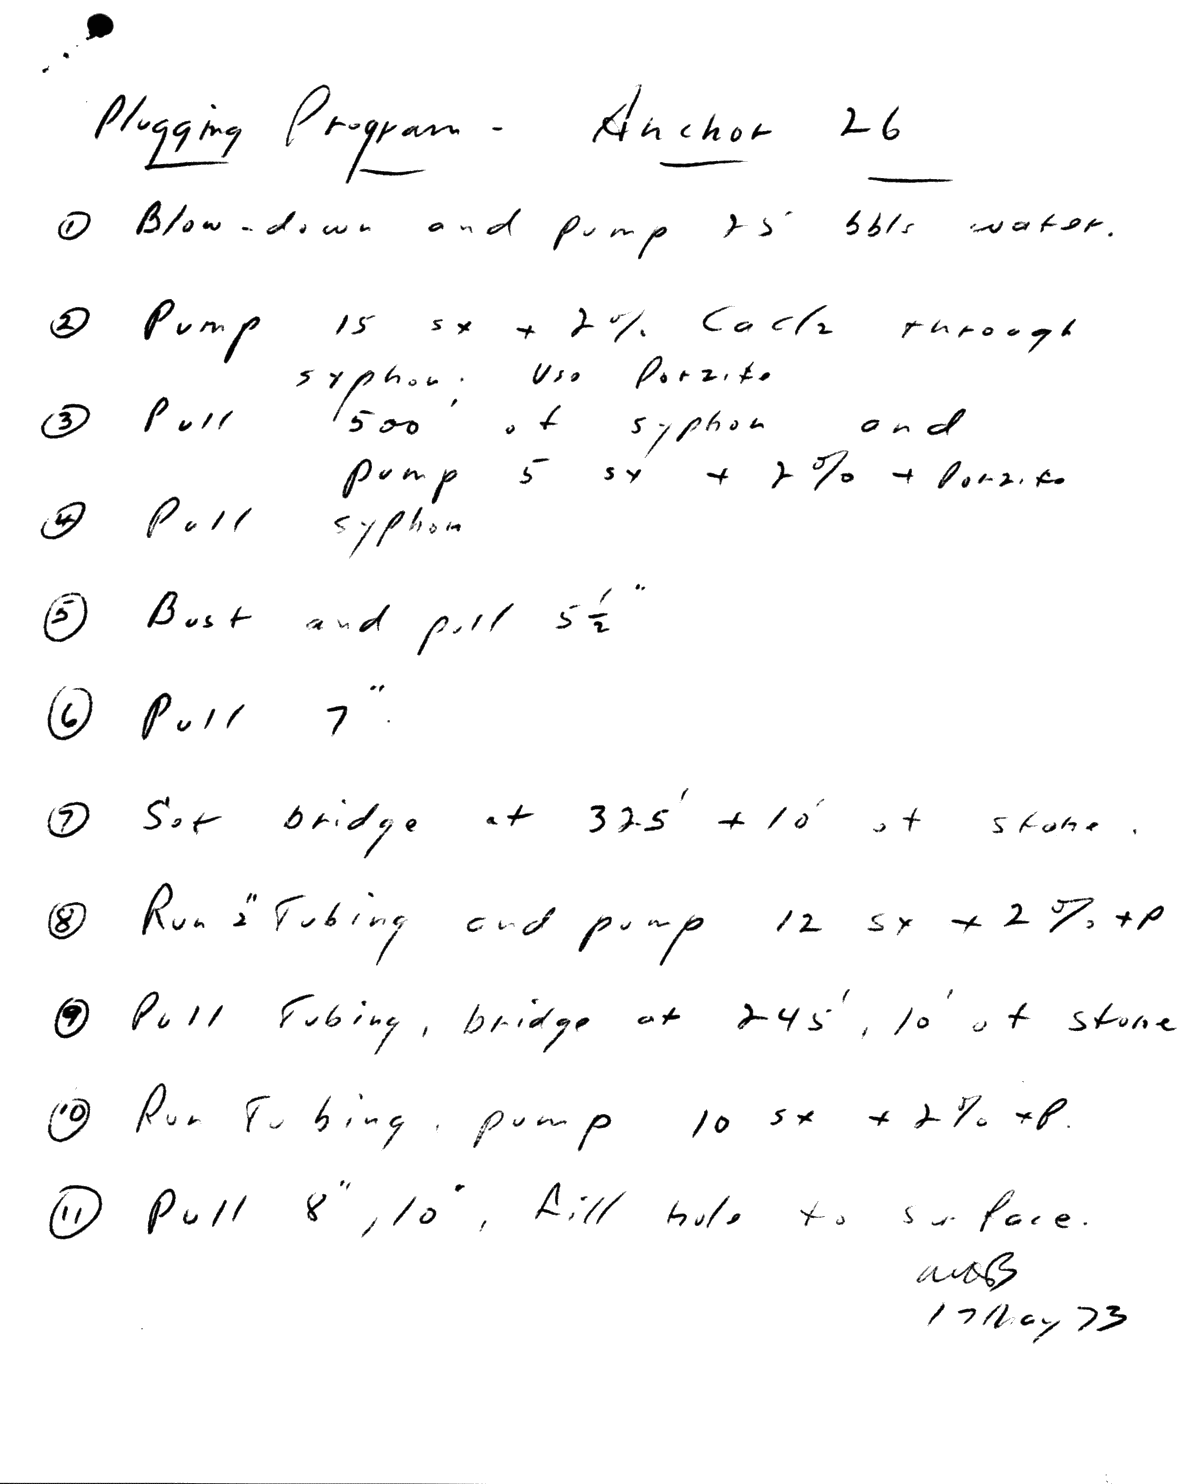 Plugging Program - Anchor 26
① Blow-down and pump 25 bbls water.
② Pump 15 sx + 2% CaCl2 through
syphon. Use Porzite
③ Pull 500' of syphon and
pump 5 sx + 2% + Porzite
④ Pull syphon
⑤ Bust and pull 5 1/2"
⑥ Pull 7".
⑦ Set bridge at 325' + 10' of stone.
⑧ Run 2" Tubing and pump 12 sx + 2% + P
⑨ Pull Tubing, bridge at 245', 10' of stone
⑩ Run Tubing, pump 10 sx + 2% + P.
⑪ Pull 8", 10", fill hole to surface.
17 May 73